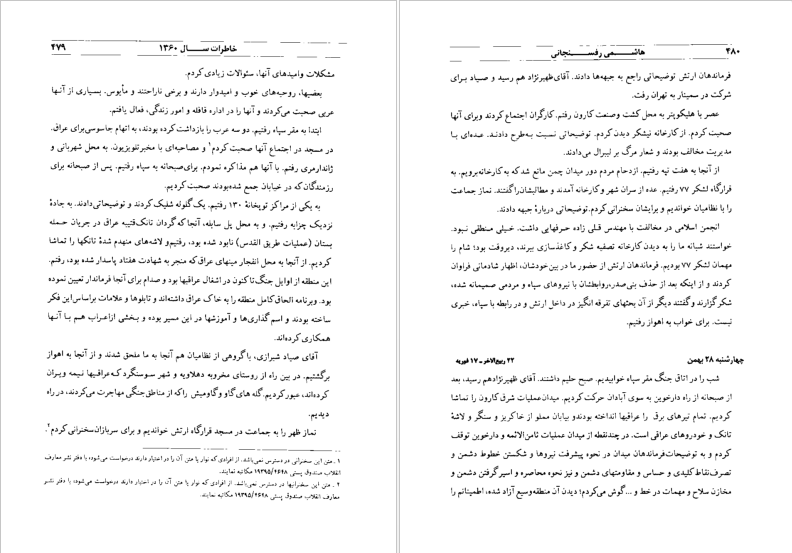 هاشمی رفسنجانی
۴۸۰
فرماندهان ارتش توضیحاتی راجع به جبهه‌ها دادند. آقای ظهیرنژاد هم رسید و صیاد برای
شرکت در سمینار به تهران رفت.
عصر با هلیکوپتر به محل کشت وصنعت کارون رفتم. کارگران اجتماع کردند وبرای آنها
صحبت کردم. از کارخانه نیشکر دیدن کردم. توضیحاتی نسبت به‌طرح دادنـد. عده‌ای با
مدیریت مخالف بودند و شعار مرگ بر لیبرال می‌دادند.
از آنجا به هفت تپه رفتیم. ازدحام مردم دور میدان چمن مانع شد که به‌کارخانه‌برویم. به
قرارگاه لشکر ۷۷ رفتیم. عده از سران شهر وکارخانه آمدند و مطالبشان‌راگفتند. نماز جماعت
را با نظامیان خواندیم و برایشان سخنرانی کردم. توضیحاتی دربارهٔ جبهه دادند.
انجمن اسلامی در مخالفت با مهندس قـلی زاده حـرفهایی داشت. خـیلی مـنطقی نـبود.
خواستند شبانه ما را به دیدن کارخانه تصفیه شکر و کاغذسـازی ببرند، دیروقت بود؛ شام را
مهمان لشکر ۷۷ بودیم. فرماندهان ارتش از حضور ما در بین‌خودشان، اظهار شادمانی فراوان
کردند و از اینکه بعد از حذف بنی‌صدر،روابطشان با نیروهای سپاه و مردمی صمیمانه شده،
شکرگزارند وگفتند دیگر از آن بحثهای تفرقه انگیز در داخل ارتش و در رابطه با سپاه، خبری
نیست. برای خواب به اهواز رفتیم.
چهارشنبه ۲۸ بهمن
۲۲ ربیع‌الاخر ـ ۱۷ فوریه
شب را در اتاق جنگ مقر سپاه خوابیدیم. صبح حلیم داشتند. آقای ظهیرنژادهم رسید، بعد
از صبحانه از راه دارخوین به سوی آبادان حرکت‌کردیم. میدان‌عملیات شرق کارون را تماشا
کردیم. تمام تیرهای برق را عراقیها انداخته بودندو بیابان مملو از خاکریز و سنگر و لاشهٔ
تانک و خودروهای عراقی است. در چندنقطه از میدان عملیات ثامن‌الائمه و دارخوین توقف
کردم و به توضیحات‌فرماندهان میدان در نحوه پیشرفت نیروها و شکستن خطوط دشمن و
تصرف‌نقاط‌کلیدی و حساس و مقاومتهای دشمن و نیز نحوه محاصره و اسیرگرفتن دشمن و
مخازن سلاح و مهمات در خط و ...گوش می‌کردم؛ دیدن آن منطقه‌وسیع آزاد شده، اطمینانم را
خاطرات سـال ۱۳۶۰
۴۷۹
مشکلات وامیدهای آنها، سئوالات زیادی کردم.
بعضیها، روحیه‌های خوب و امیدوار دارند و برخی ناراحتند و مأیوس. بسیاری از آنـها
عربی صحبت می‌کردند و آنها را در اداره قافله و امور زندگی، فعال یافتم.
ابتدا به مقر سپاه رفتیم. دو سه عرب را بازداشت کرده بودند، به اتهام جاسوسی‌برای عراق.
در مسجد در اجتماع آنها صحبت کردم۱ و مصاحبه‌ای با مخبرتلویزیون. به محل شهربانی و
ژاندارمری رفتم. با آنها هم مذاکره نمودم. برای‌صبحانه به سپاه رفتیم. پس از صبحانه برای
رزمندگان‌که در خیابان جمع شده‌بودند صحبت کردیم.
به یکی از مراکز توپخانهٔ ۱۳۰ رفتیم. یک‌گلوله شلیک کردند و توضیحاتی‌دادند. به جادهٔ
نزدیک چزابه رفتیم. و به محل پل سابله، آنجا‌که‌گردان تانک‌قتیبه عراق در جریان حـمله
بستان (عملیات طریق القدس) نابود شده بود، رفتیم‌و لاشه‌های منهدم شدهٔ تانکها را تماشا
کردیم. از آنجا به محل انفجار مینهای عراق‌که منجر به شهادت هفتاد پاسدار شده بود، رفتم.
این منطقه از اوایل جنگ‌تاکنون در اشغال عراقیها بود و صدام برای آنجا فرماندار تعیین نموده
بود. وبرنامه الحاق‌کامل منطقه را به خاک عراق داشته‌اند و تابلوها و علامات براساس‌این فکر
ساخته بودند و اسم گذاری‌ها و آموزشها در این مسیر بوده و بـخشی ازاعـراب هـم بـا آنـها
همکاری کرده‌اند.
آقای صیاد شیرازی، باگروهی از نظامیان هم آنجا به ما ملحق شدند و از آنجا به اهواز
برگشتیم. در بین راه از روستای مخروبه دهلاویه و شهر سـوسنگرد کـه‌عراقیـها نیـمه ویـران
کرده‌اند، عبورکردیم.گله های‌گاو وگاومیش راکه از مناطق‌جنگی مهاجرت می‌کردند، در راه
دیدیم.
نماز ظهر را به جماعت در مسجد قرارگاه ارتش خواندیم و برای سربازان‌سخنرانی کردم۲.
۱ ـ متن این سخنرانی در دسترس نمی‌باشد. از افرادی‌که نوار یا متن آن را در اختیار دارند درخواست می‌شود، با دفتر نشر معارف
انقلاب صندوق پستی ۱۹۳۹۵/۲۶۴۸ مکاتبه نمایند.
۲ ـ متن این سخنرانیها در دسترس نمی‌باشد. از افرادی که نوار یا متن آن را در اختیار دارند درخواست می‌شود، با دفتر نشـر
معارف انقلاب صندوق پستی ۱۹۳۹۵/۲۶۴۸ مکاتبه نمایند.